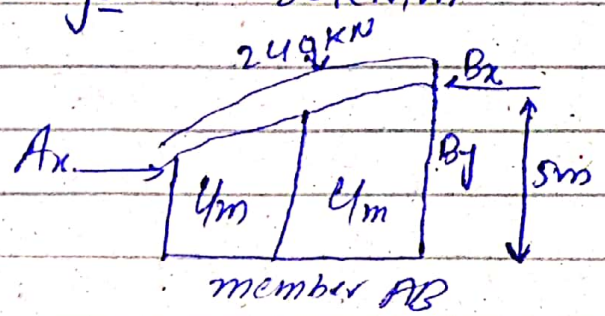 249 KN
Bx
Ax
4m
4m
By
5m
member AB